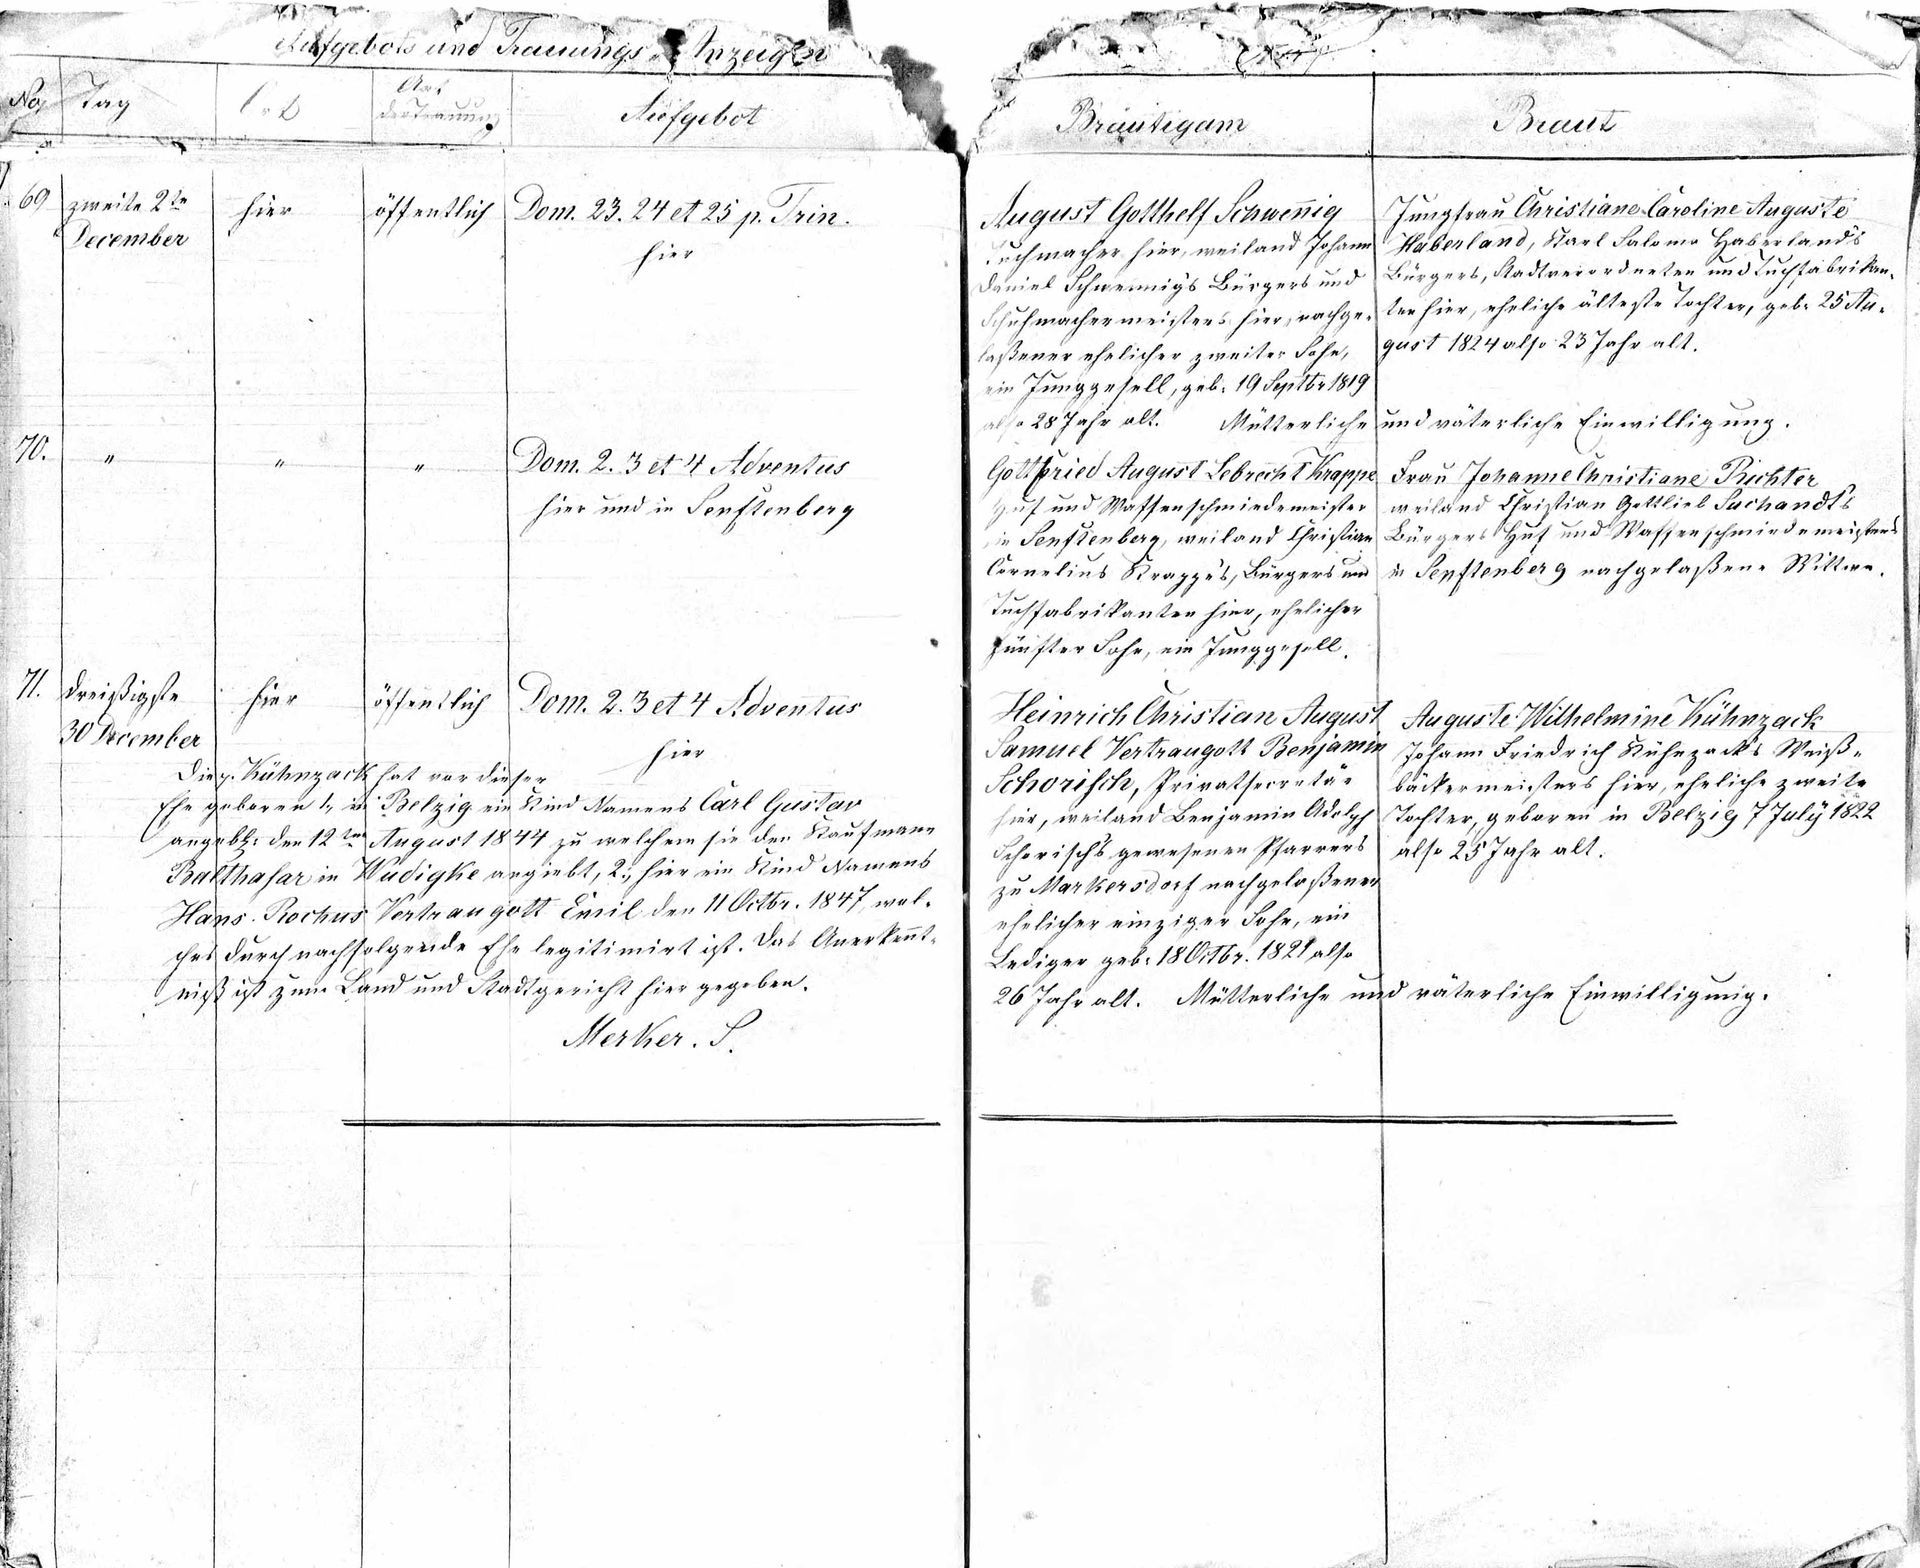 Aufgebots und Trauungs-Anzeigen
No. Tag Ort Art der Trauung Aufgebot
69 zweite 2te hier öffentlich Dom. 23. 24 et 25 p. Trin.
December hier
70. " " " Dom. 2. 3 et 4 Adventus
hier und in Senftenberg
71. dreißigste hier öffentlich Dom. 2. 3 et 4 Adventus
30 December hier
Die p. Kühnzack hat vor dieser
Ehe geboren 1., in Belzig ein Kind Namens Carl Gustav
angebl: den 12ten August 1844 zu welchem sie den Kaufmann
Balthasar in Wudigke angiebt, 2., hier ein Kind Namens
Hans Rochus Vertraugott Emil den 11 Octbr. 1847, wel-
ches durch nachfolgende Ehe legitimirt ist. Das Anerkennt-
niß ist zum Land und Stadtgericht hier gegeben.
Merker. S.
Bräutigam Braut
August Gotthelf Schwennig
Tuchmacher hier, weiland Johann
Daniel Schwennigs Bürgers und
Schuhmachermeisters hier, nachge-
laßener ehelicher zweiter Sohn,
ein Junggesell, geb. 19 Septbr 1819
also 28 Jahr alt. Mütterliche und väterliche Einwilligung.
Jungfrau Christiane Caroline Auguste
Haberland, Karl Salomo Haberland's
Bürgers, Stadtverordneten und Tuchfabrikan-
ten hier, eheliche älteste Tochter, geb. 25 Au-
gust 1824 also 23 Jahr alt.
Gottfried August Lebrecht Krappe
Huf und Waffenschmiedemeister
in Senftenberg, weiland Christian
Cornelius Krappe's, Bürgers und
Tuchfabrikanten hier, ehelicher
fünfter Sohn, ein Junggesell.
Frau Johanne Christiane Richter
weiland Christian Gottlieb Suchandt's
Bürgers Huf und Waffenschmiedemeisters
in Senftenberg nachgelaßene Wittwe.
Heinrich Christian August
Samuel Vertraugott Benjamin
Schorisch, Privatsecretär
hier, weiland Benjamin Adolph
Schorisch's gewesenen Pfarrers
zu Markersdorf nachgelaßener
ehelicher einziger Sohn, ein
Lediger geb. 18 Octbr. 1821 also
26 Jahr alt. Mütterliche und väterliche Einwilligung.
Auguste Wilhelmine Kühnzack
Johann Friedrich Kühnzack's Weiß-
bäckermeisters hier, eheliche zweite
Tochter, geboren in Belzig 7 July 1822
also 25 Jahr alt.